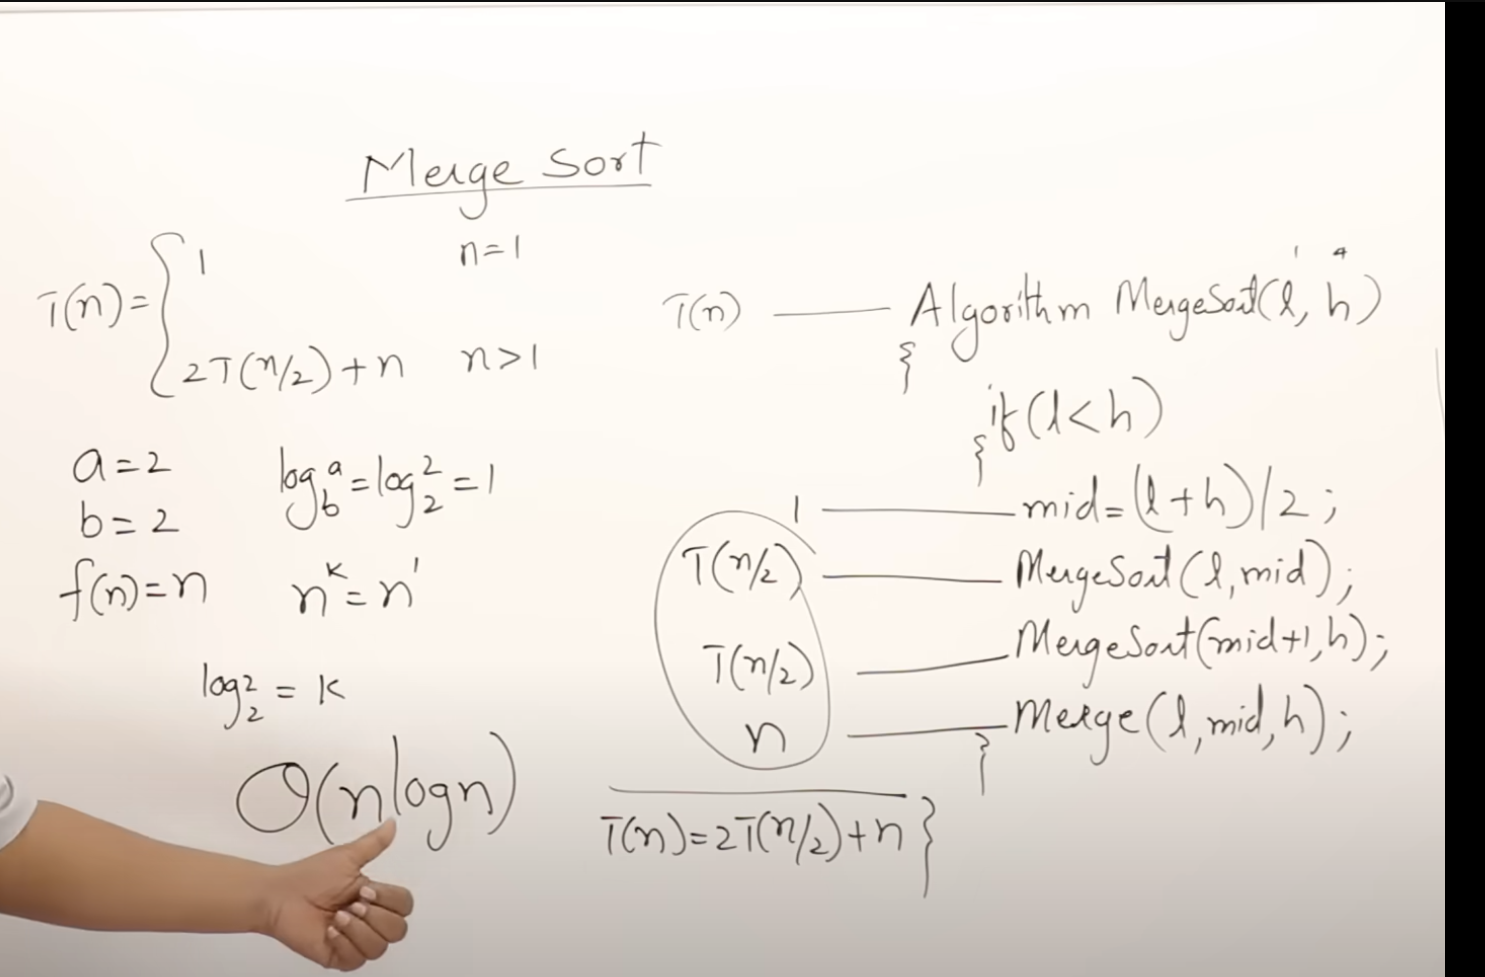 Merge Sort
T(n)= { 1 n=1
2T(n/2)+n n>1
a=2
b=2
f(n)=n
log_b^a = log_2^2 = 1
n^k = n^1
log_2^2 = k
O(nlogn)
1 4
T(n) — Algorithm MergeSort(l, h)
{
if(l<h)
{
1 — mid=(l+h)/2;
T(n/2) — MergeSort(l,mid);
T(n/2) — MergeSort(mid+1,h);
n — Merge(l,mid,h);
}
T(n)=2T(n/2)+n }